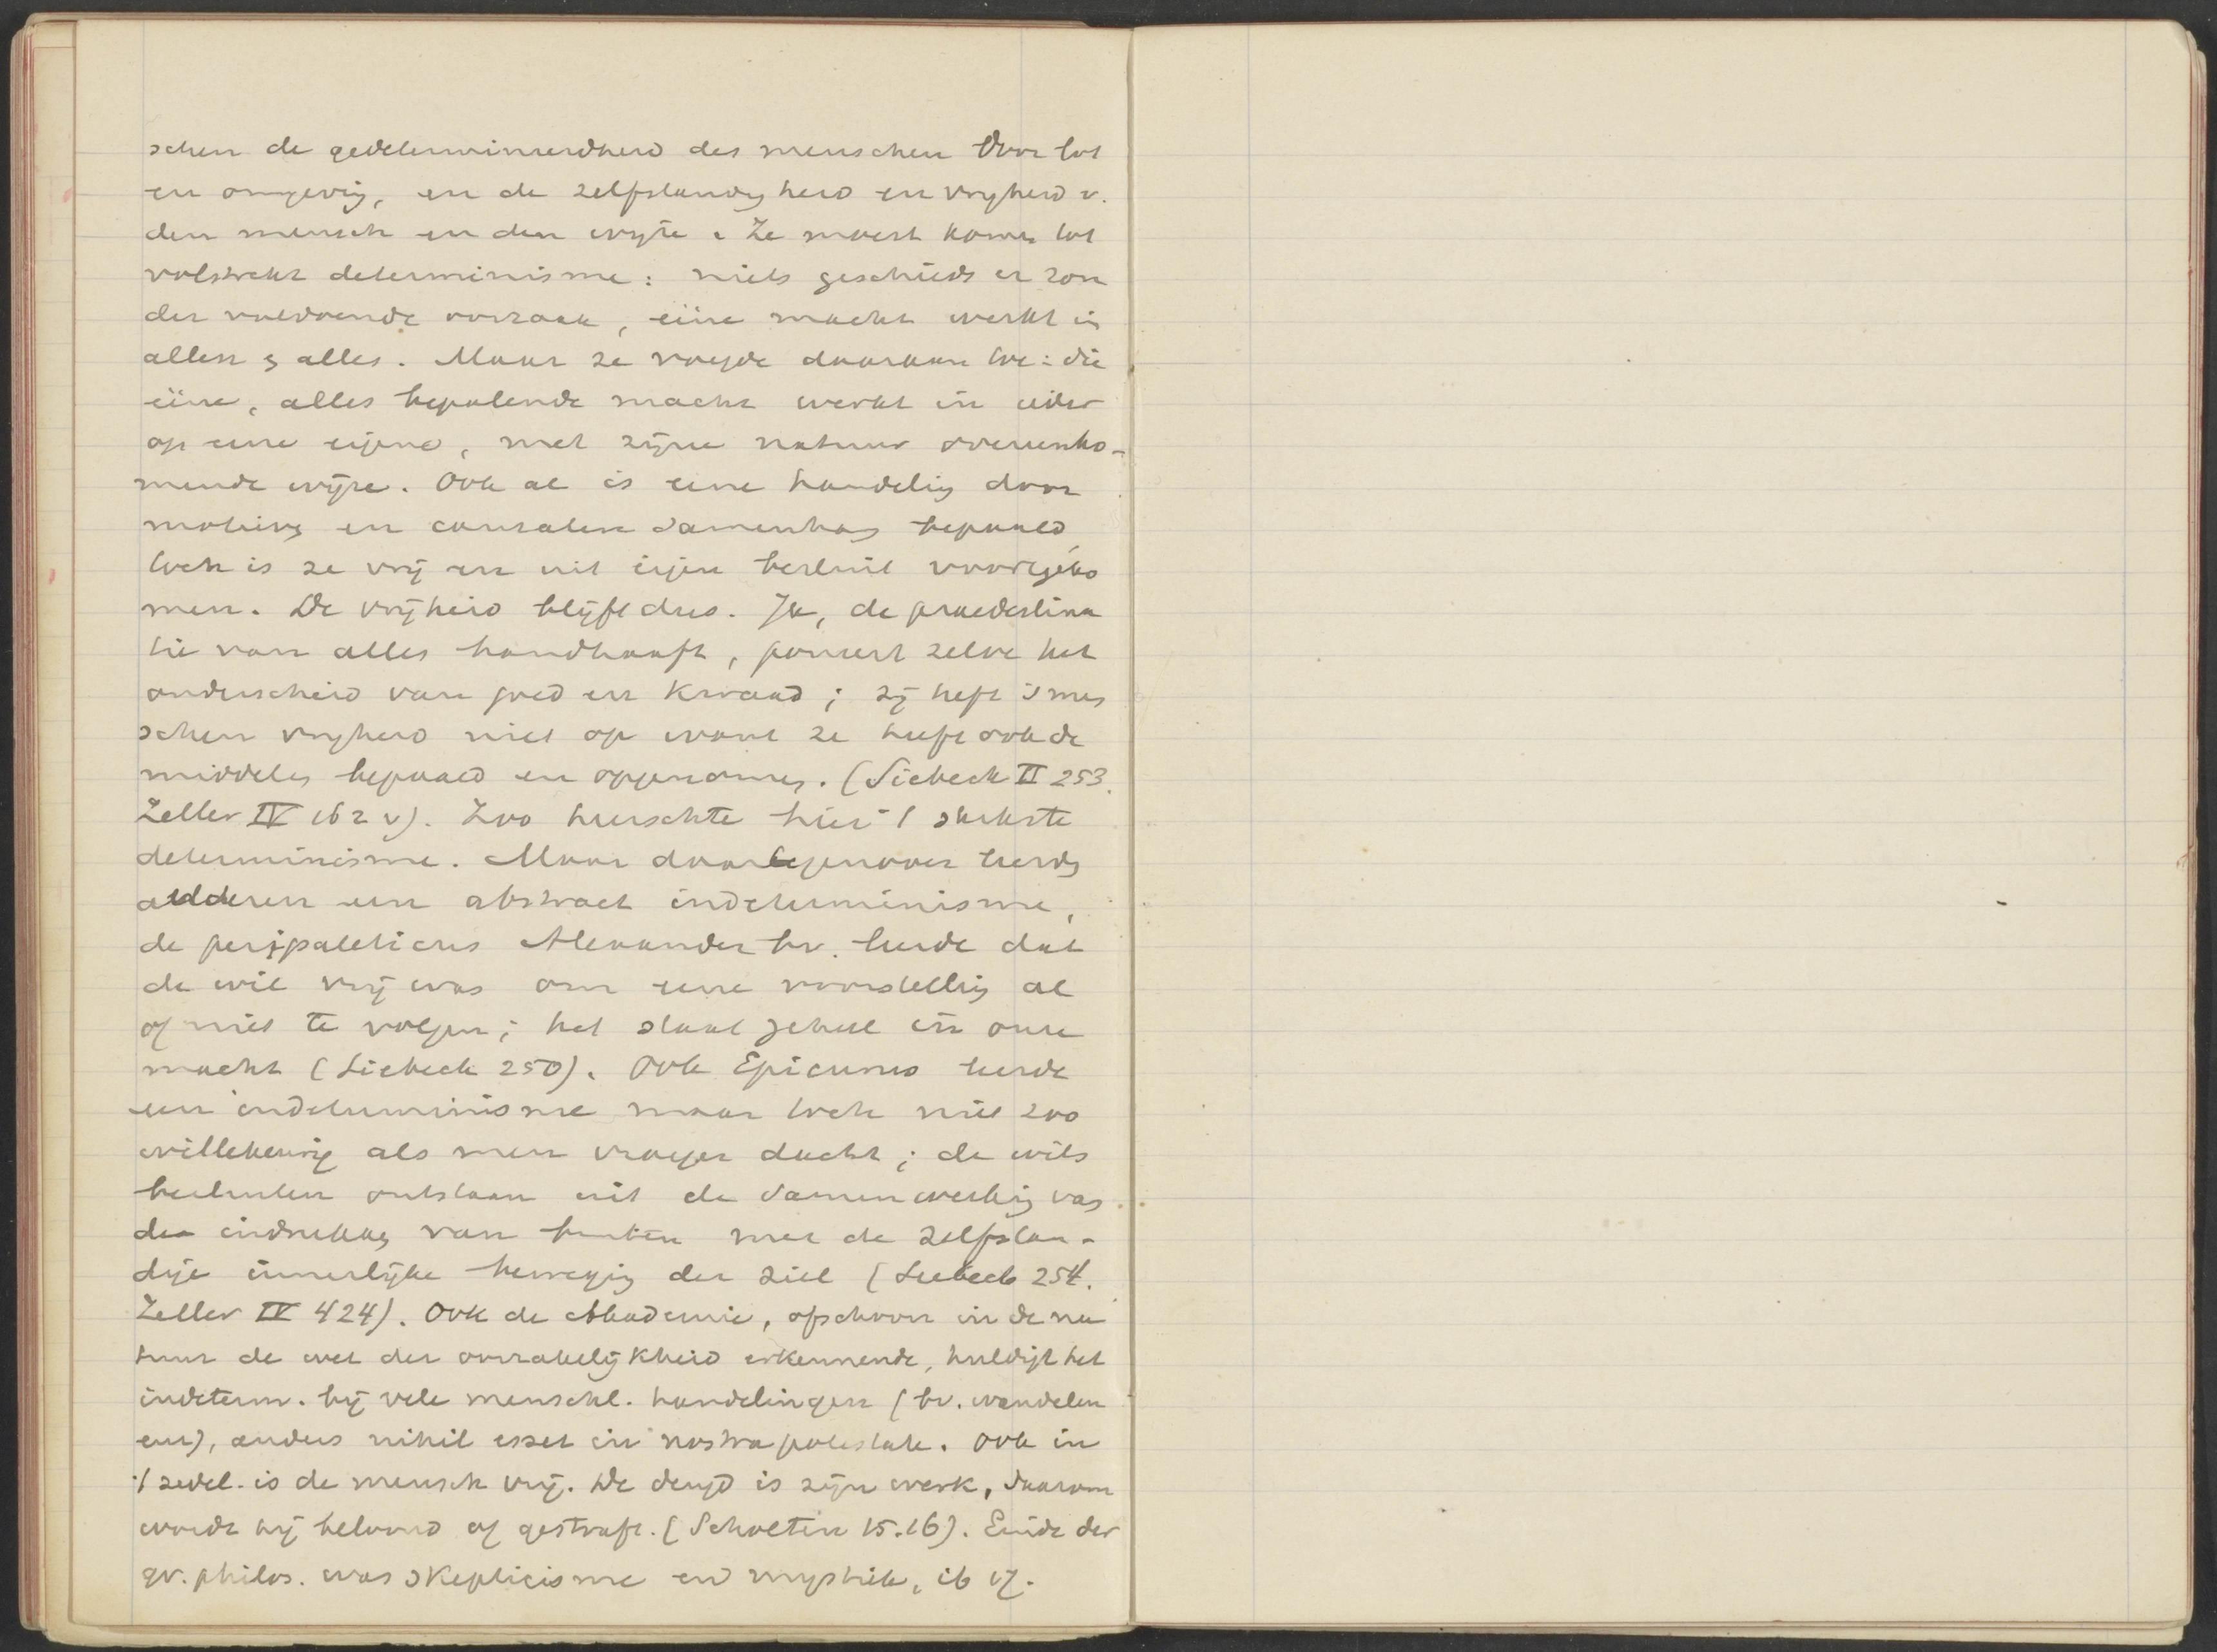 schen de gedetermineerdheid des menschen door lot
en omgeving, en de zelfstandigheid en vrijheid v.
den mensch en den wijze. Ze moest komen tot
volstrekt determinisme: niets geschiedt er zon
der voldoende oorzaak, eéne macht werkt in
allen & alles. Maar ze voegde daaraan toe: die
eéne, alles bepalende macht werkt in ieder
op eene eigene, met zijne natuur overeenko-
mende wijze. Ook al is eene handeling door
motiven en causalen samenhang bepaald,
toch is ze vrij en uit eigen besluit voortgeko
men. De vrijheid blijft dus. Ja, de praedestina
tie van alles handhaaft, poneert zelve het
onderscheid van goed en kwaad; zij heft 's men
schen vrijheid niet op want ze heeft ook de
middelen bepaald en opgenomen. (Siebeck II 253.
Zeller IV 162 v). Zoo heerschte hier 't sterkste
determinisme. Maar daartegenover leerden
anderen een abstract indeterminisme,
de peripateticus Alexander bv. leerde dat
de wil vrij was om eene voorstelling al
of niet te volgen; het staat geheel in onze
macht (Siebeck 250). Ook Epicurus leerde
een indeterminisme maar toch niet zoo
willekeurig als men vroeger dacht; de wils
besluiten ontstaan uit de samenwerking van
de indrukken van buiten met de zelfstan-
dige innerlijke beweging der ziel (Siebeck 254.
Zeller IV 424). Ook de Akademie, ofschoon in de na
tuur de wet der oorzakelijkheid erkennende, huldigt het
indeterm. bij vele menschl. handelingen (bv. wandelen
enz), anders nihil esset in nostra potestate. Ook in
't zedel. is de mensch vrij. De deugd is zijn werk, daarom
wordt hij beloond of gestraft. (Scholten 15.16). Einde der
gr. philos. was skepticisme en mystiek, ib 17.